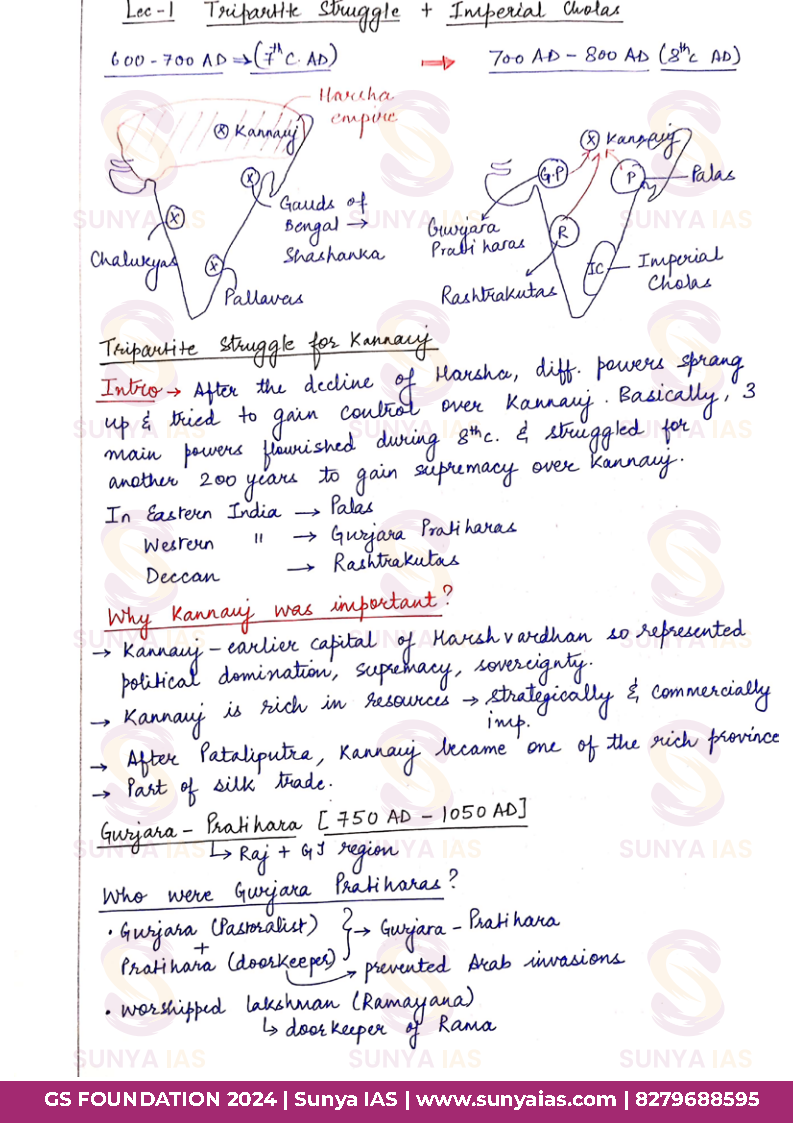 Lec-1 Tripartite Struggle + Imperial Cholas
600-700 AD ⇒ (7th C. AD) → 700 AD - 800 AD (8th c AD)
Harsha
empire
Kannauj
Gauds of
Bengal →
Shashanka
Chalukyas
Pallavas
Kannauj
G.P
P
Palas
Gurjara
Pratiharas
R
Rashtrakutas
IC
Imperial
Cholas
Tripartite Struggle for Kannauj
Intro → After the decline of Harsha, diff. powers sprang
up & tried to gain control over Kannauj. Basically, 3
main powers flourished during 8thc. & struggled for
another 200 years to gain supremacy over Kannauj.
In Eastern India → Palas
Western " → Gurjara Pratiharas
Deccan → Rashtrakutas
Why Kannauj was important?
→ Kannauj - earlier capital of Harshvardhan so represented
political domination, supremacy, sovereignty.
→ Kannauj is rich in resources → strategically & commercially
imp.
→ After Pataliputra, Kannauj became one of the rich province
→ Part of silk trade.
Gurjara - Pratihara [750 AD - 1050 AD]
↳ Raj + GJ region
Who were Gurjara Pratiharas?
• Gurjara (Pastoralist) } → Gurjara - Pratihara
+
Pratihara (doorkeeper) → prevented Arab invasions
• worshipped lakshman (Ramayana)
↳ doorkeeper of Rama
SUNYA IAS
GS FOUNDATION 2024 | Sunya IAS | www.sunyaias.com | 8279688595